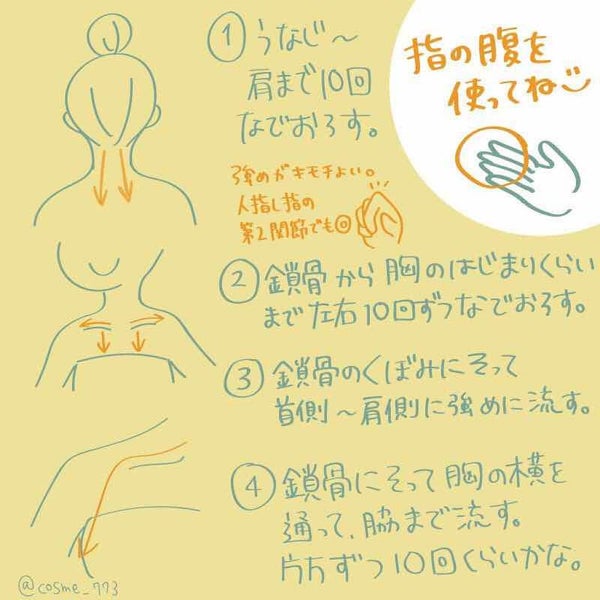 ① うなじ〜
肩まで10回
なでおろす。
指の腹を
使ってね
強めがキモチよい。
人指し指の
第2関節でも◎
② 鎖骨から胸のはじまりくらい
まで左右10回ずつなでおろす。
③ 鎖骨のくぼみにそって
首側〜肩側に強めに流す。
④ 鎖骨にそって胸の横を
通って、脇まで流す。
片方ずつ10回くらいかな。
@cosme_773